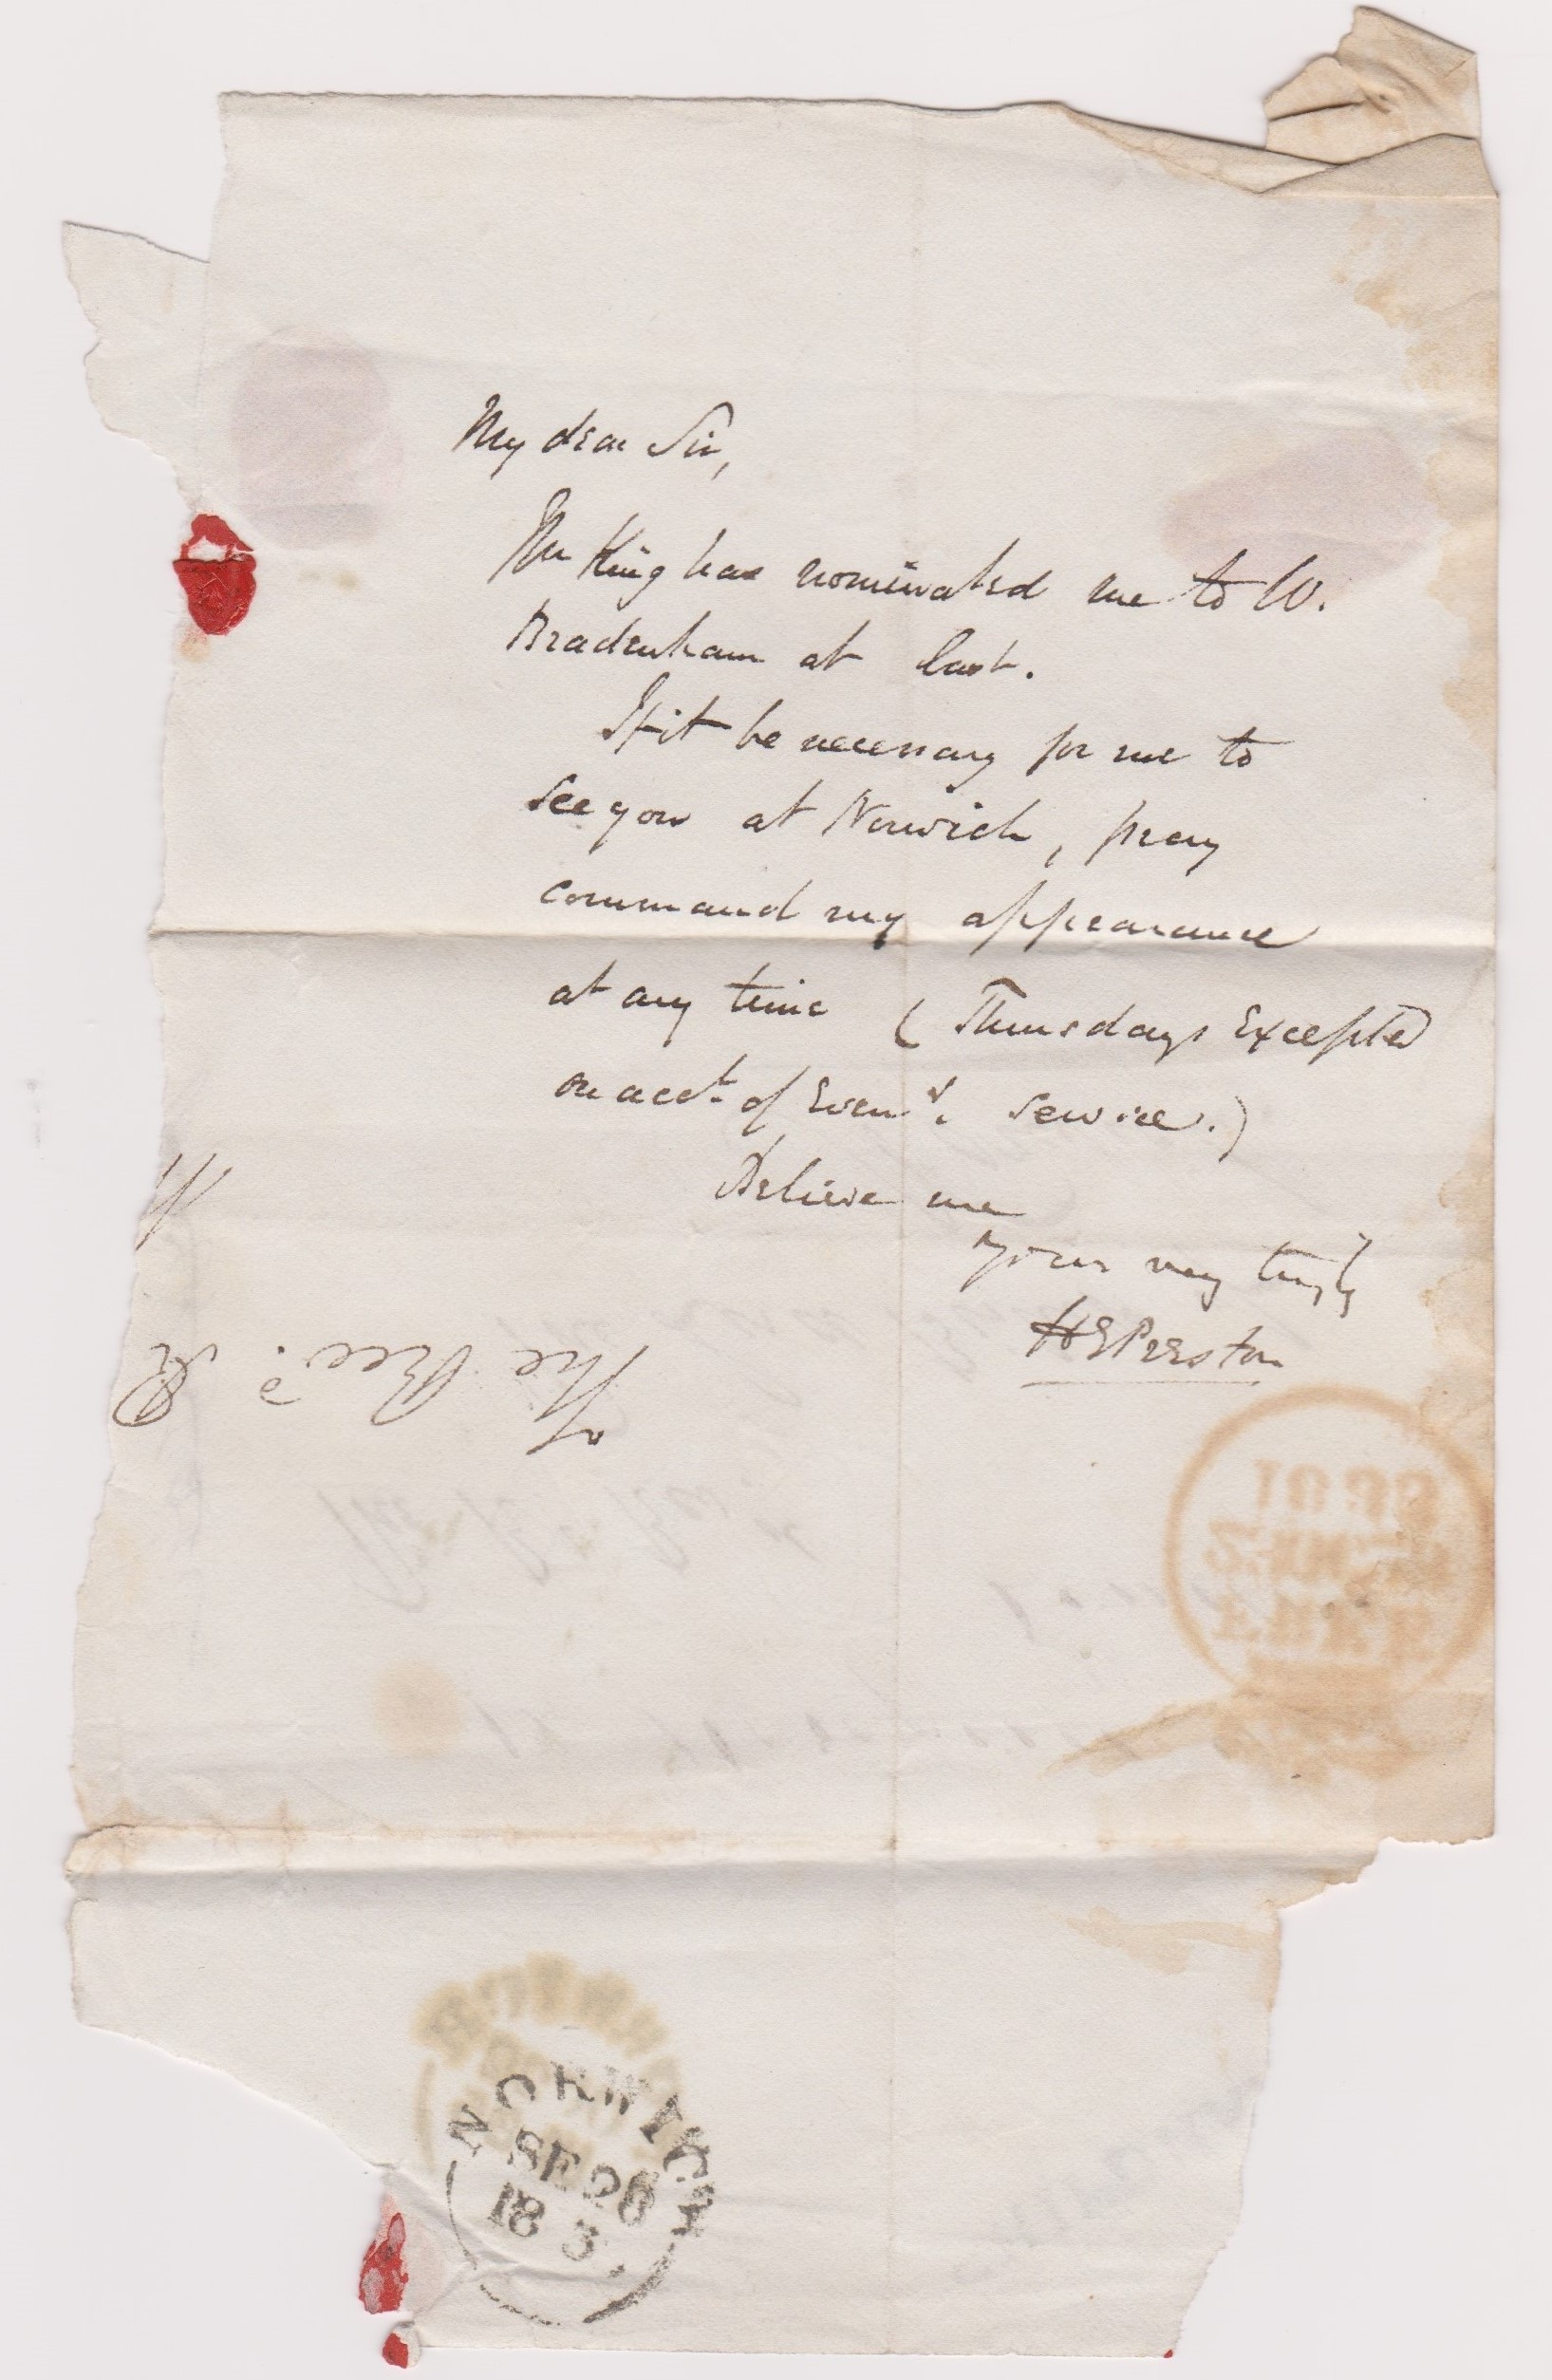 My dear Sir,
The King has nominated me to W.
Bradenham at last.
If it be necessary for me to
see you at Norwich, pray
command my appearance
at any time (Thursdays Excepted
on acct. of Eveng. Service.)
Believe me
yours very truly
HEPreston
To
The Revd.
NORWICH
SE 28
183